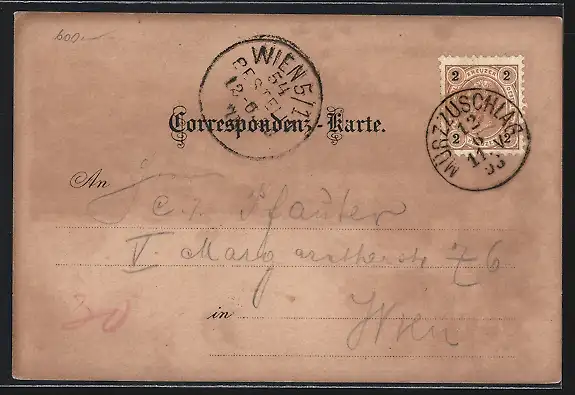 600.-
WIEN 5/1
54
BESTELLT
12·6
2 KREUZER 2
2 2
MÜRZZUSCHLAG
12
6
11 V
93
Correspondenz-Karte.
An
Pfauter
V. Margarethenstr 76
in Wien
30